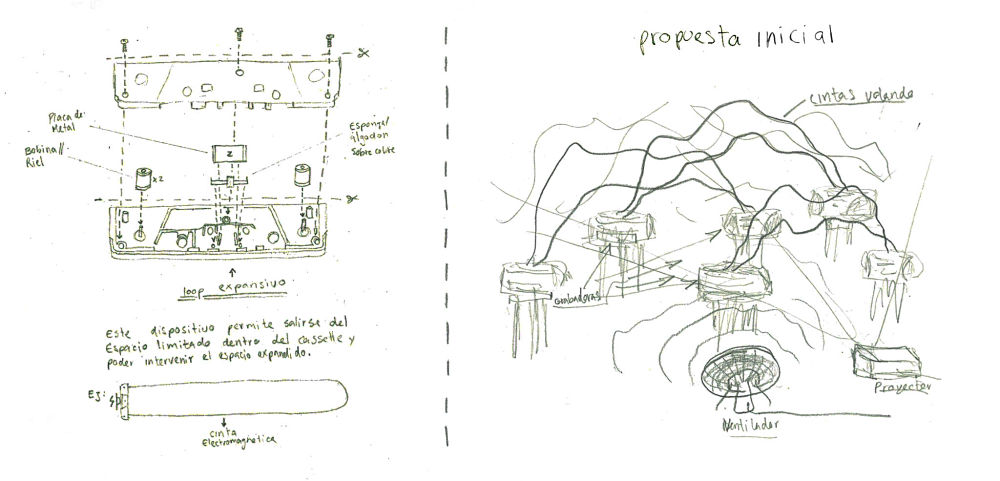 Placa de
Metal
z
Esponja/
Algodon
sobre cable
Bobina//
Riel
x2
loop expansivo
Este dispositivo permite salirse del
Espacio limitado dentro del cassette y
poder intervenir el espacio expandido.
EJ:
cinta
Electromagnética
propuesta inicial
cintas volando
Grabadoras
Proyector
Ventilador